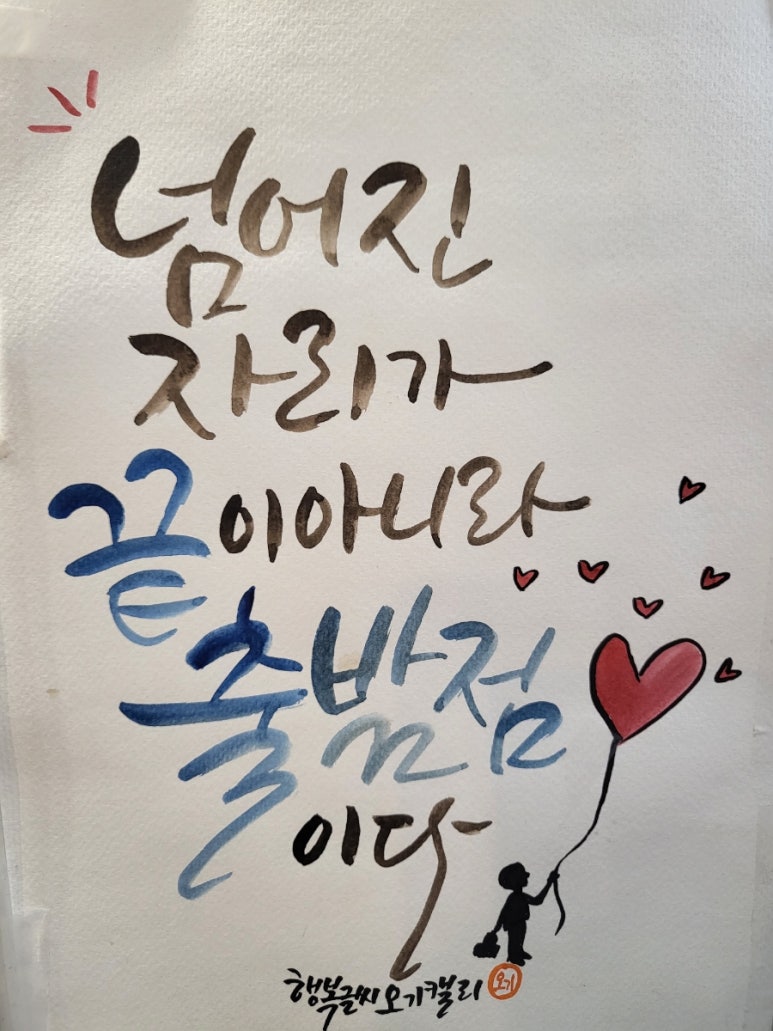 넘어진
자리가
끝이아니라
출발점
이다
행복글씨오기캘리
오기